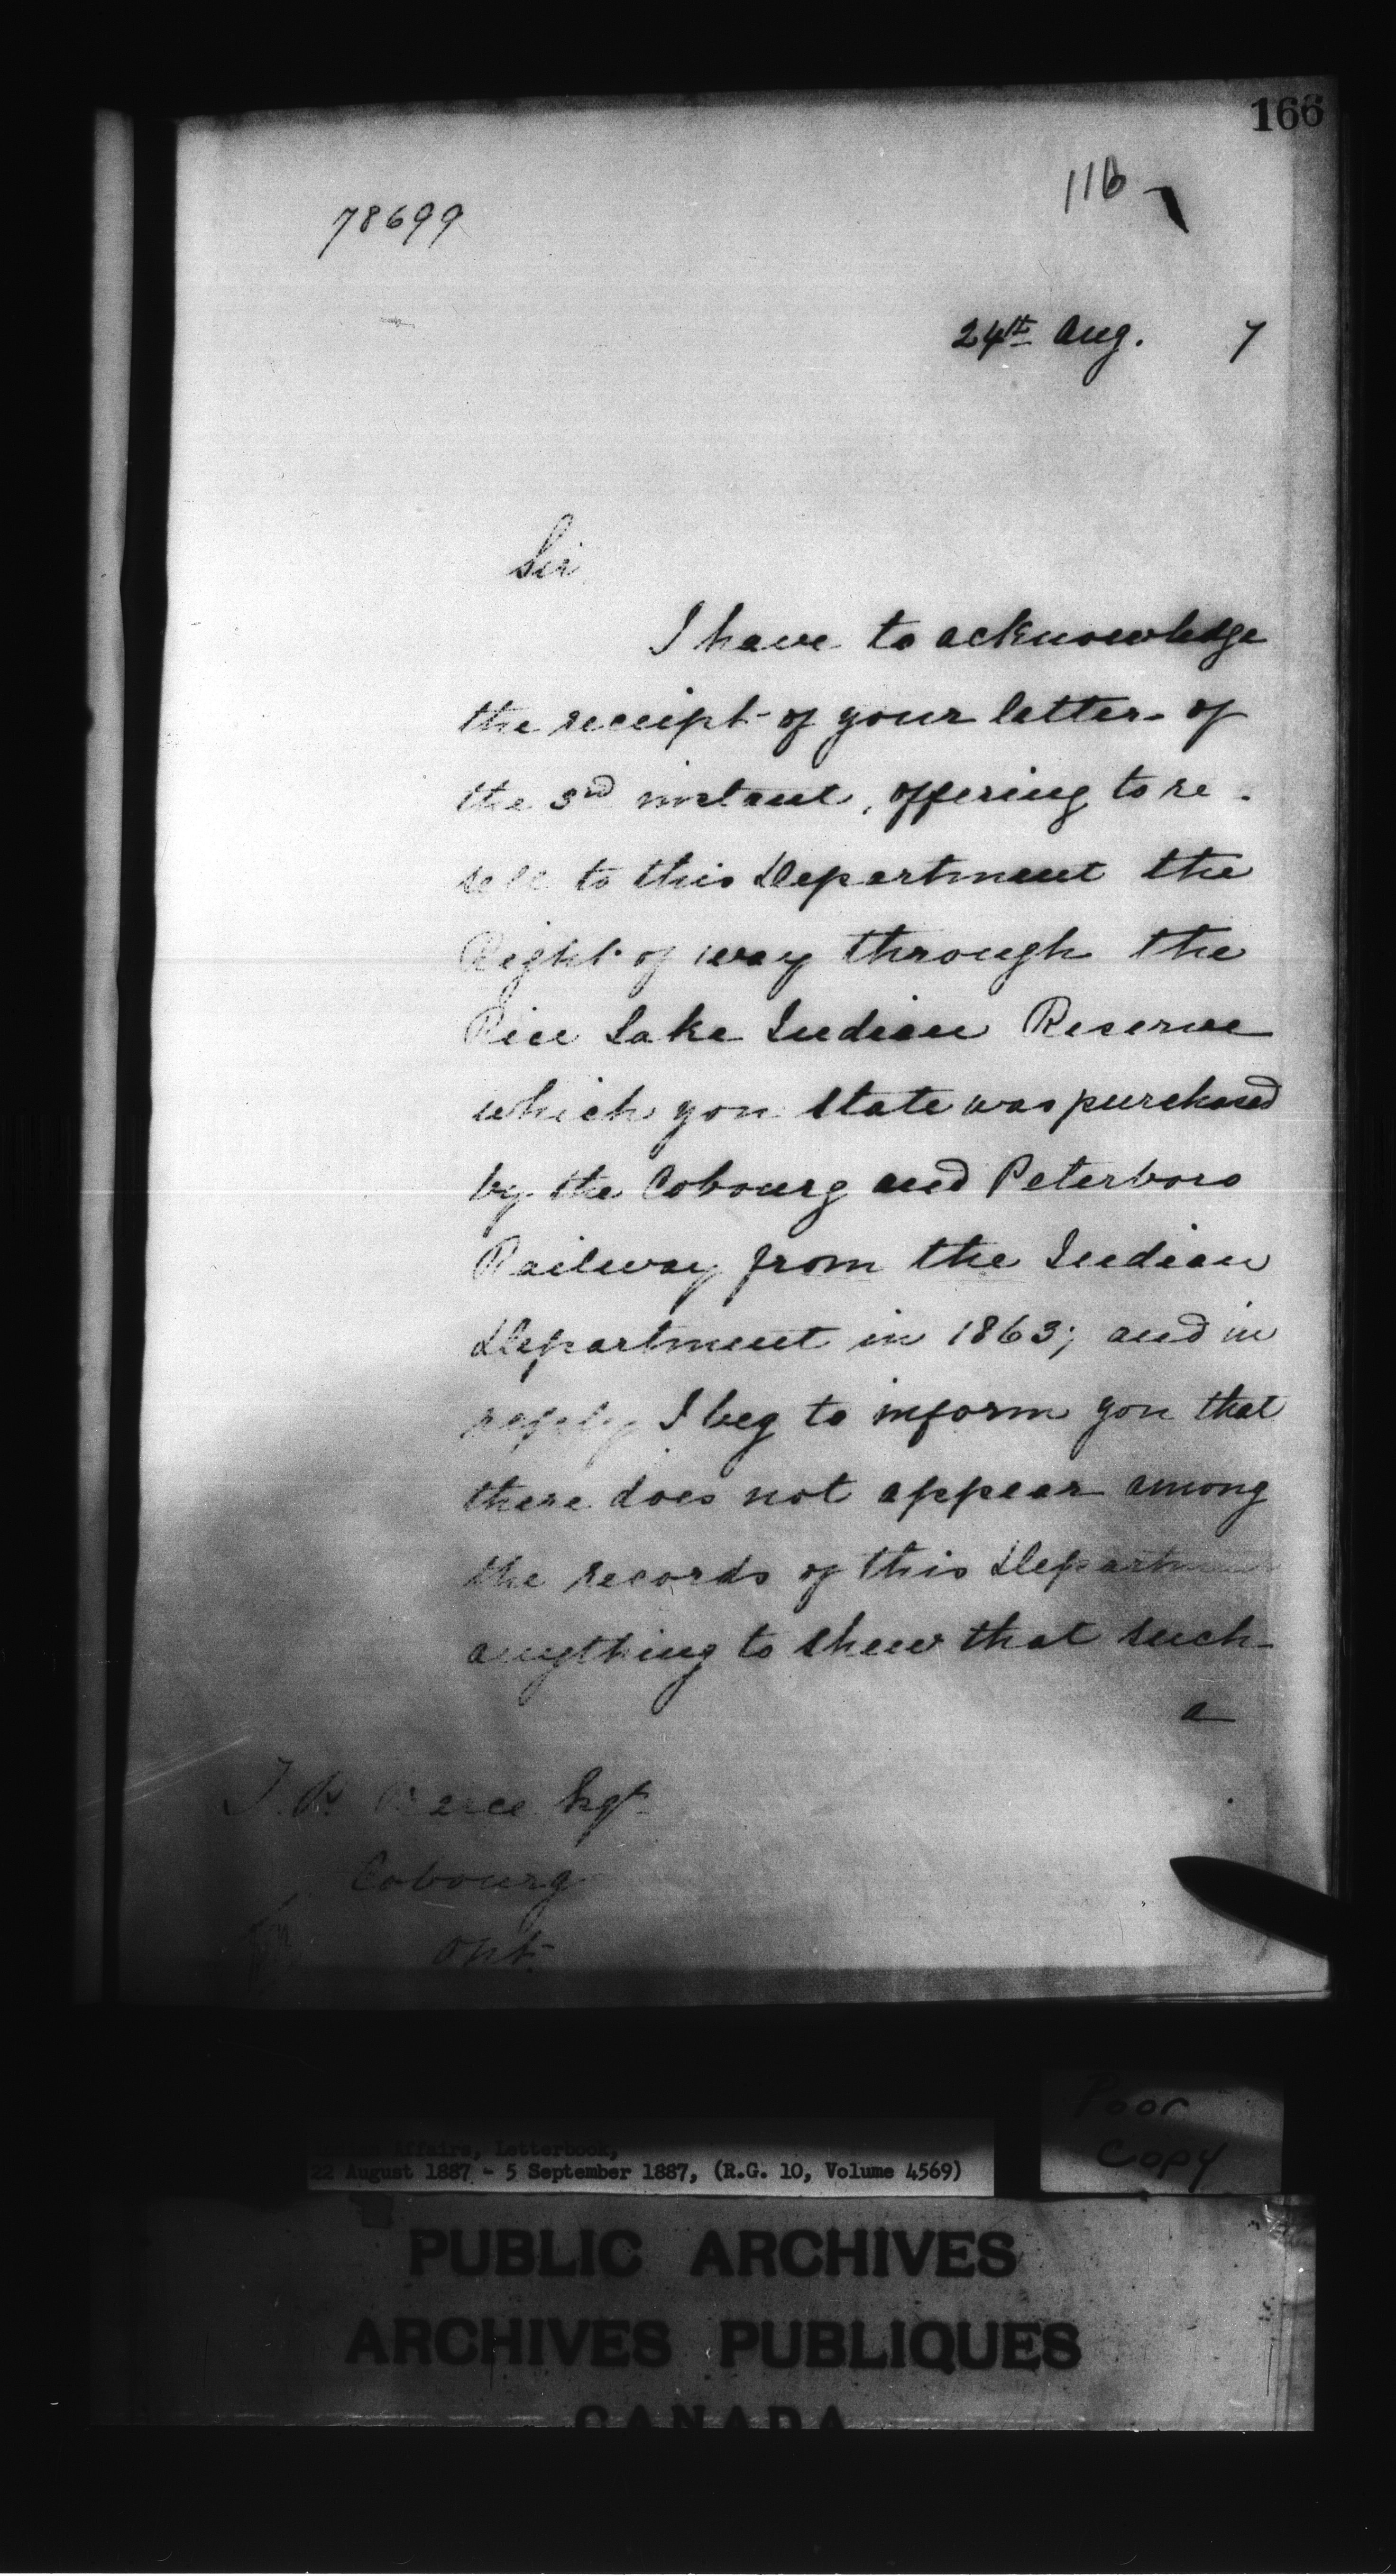 166
116
78699
24th Aug. 7
Sir
I have to acknowledge
the receipt of your letter of
the 3rd instant, offering to re-
sell to this Department the
Right of way through the
Rice Lake Indian Reserve
which you state was purchased
by the Cobourg and Peterboro
Railway from the Indian
Department in 1863; and in
reply I beg to inform you that
there does not appear among
the records of this Department
anything to shew that such
a
Cobourg
Ont.
Poor
Copy
Affairs, Letterbook,
22 August 1887 - 5 September 1887, (R.G. 10, Volume 4569)
PUBLIC ARCHIVES
ARCHIVES PUBLIQUES
CANADA